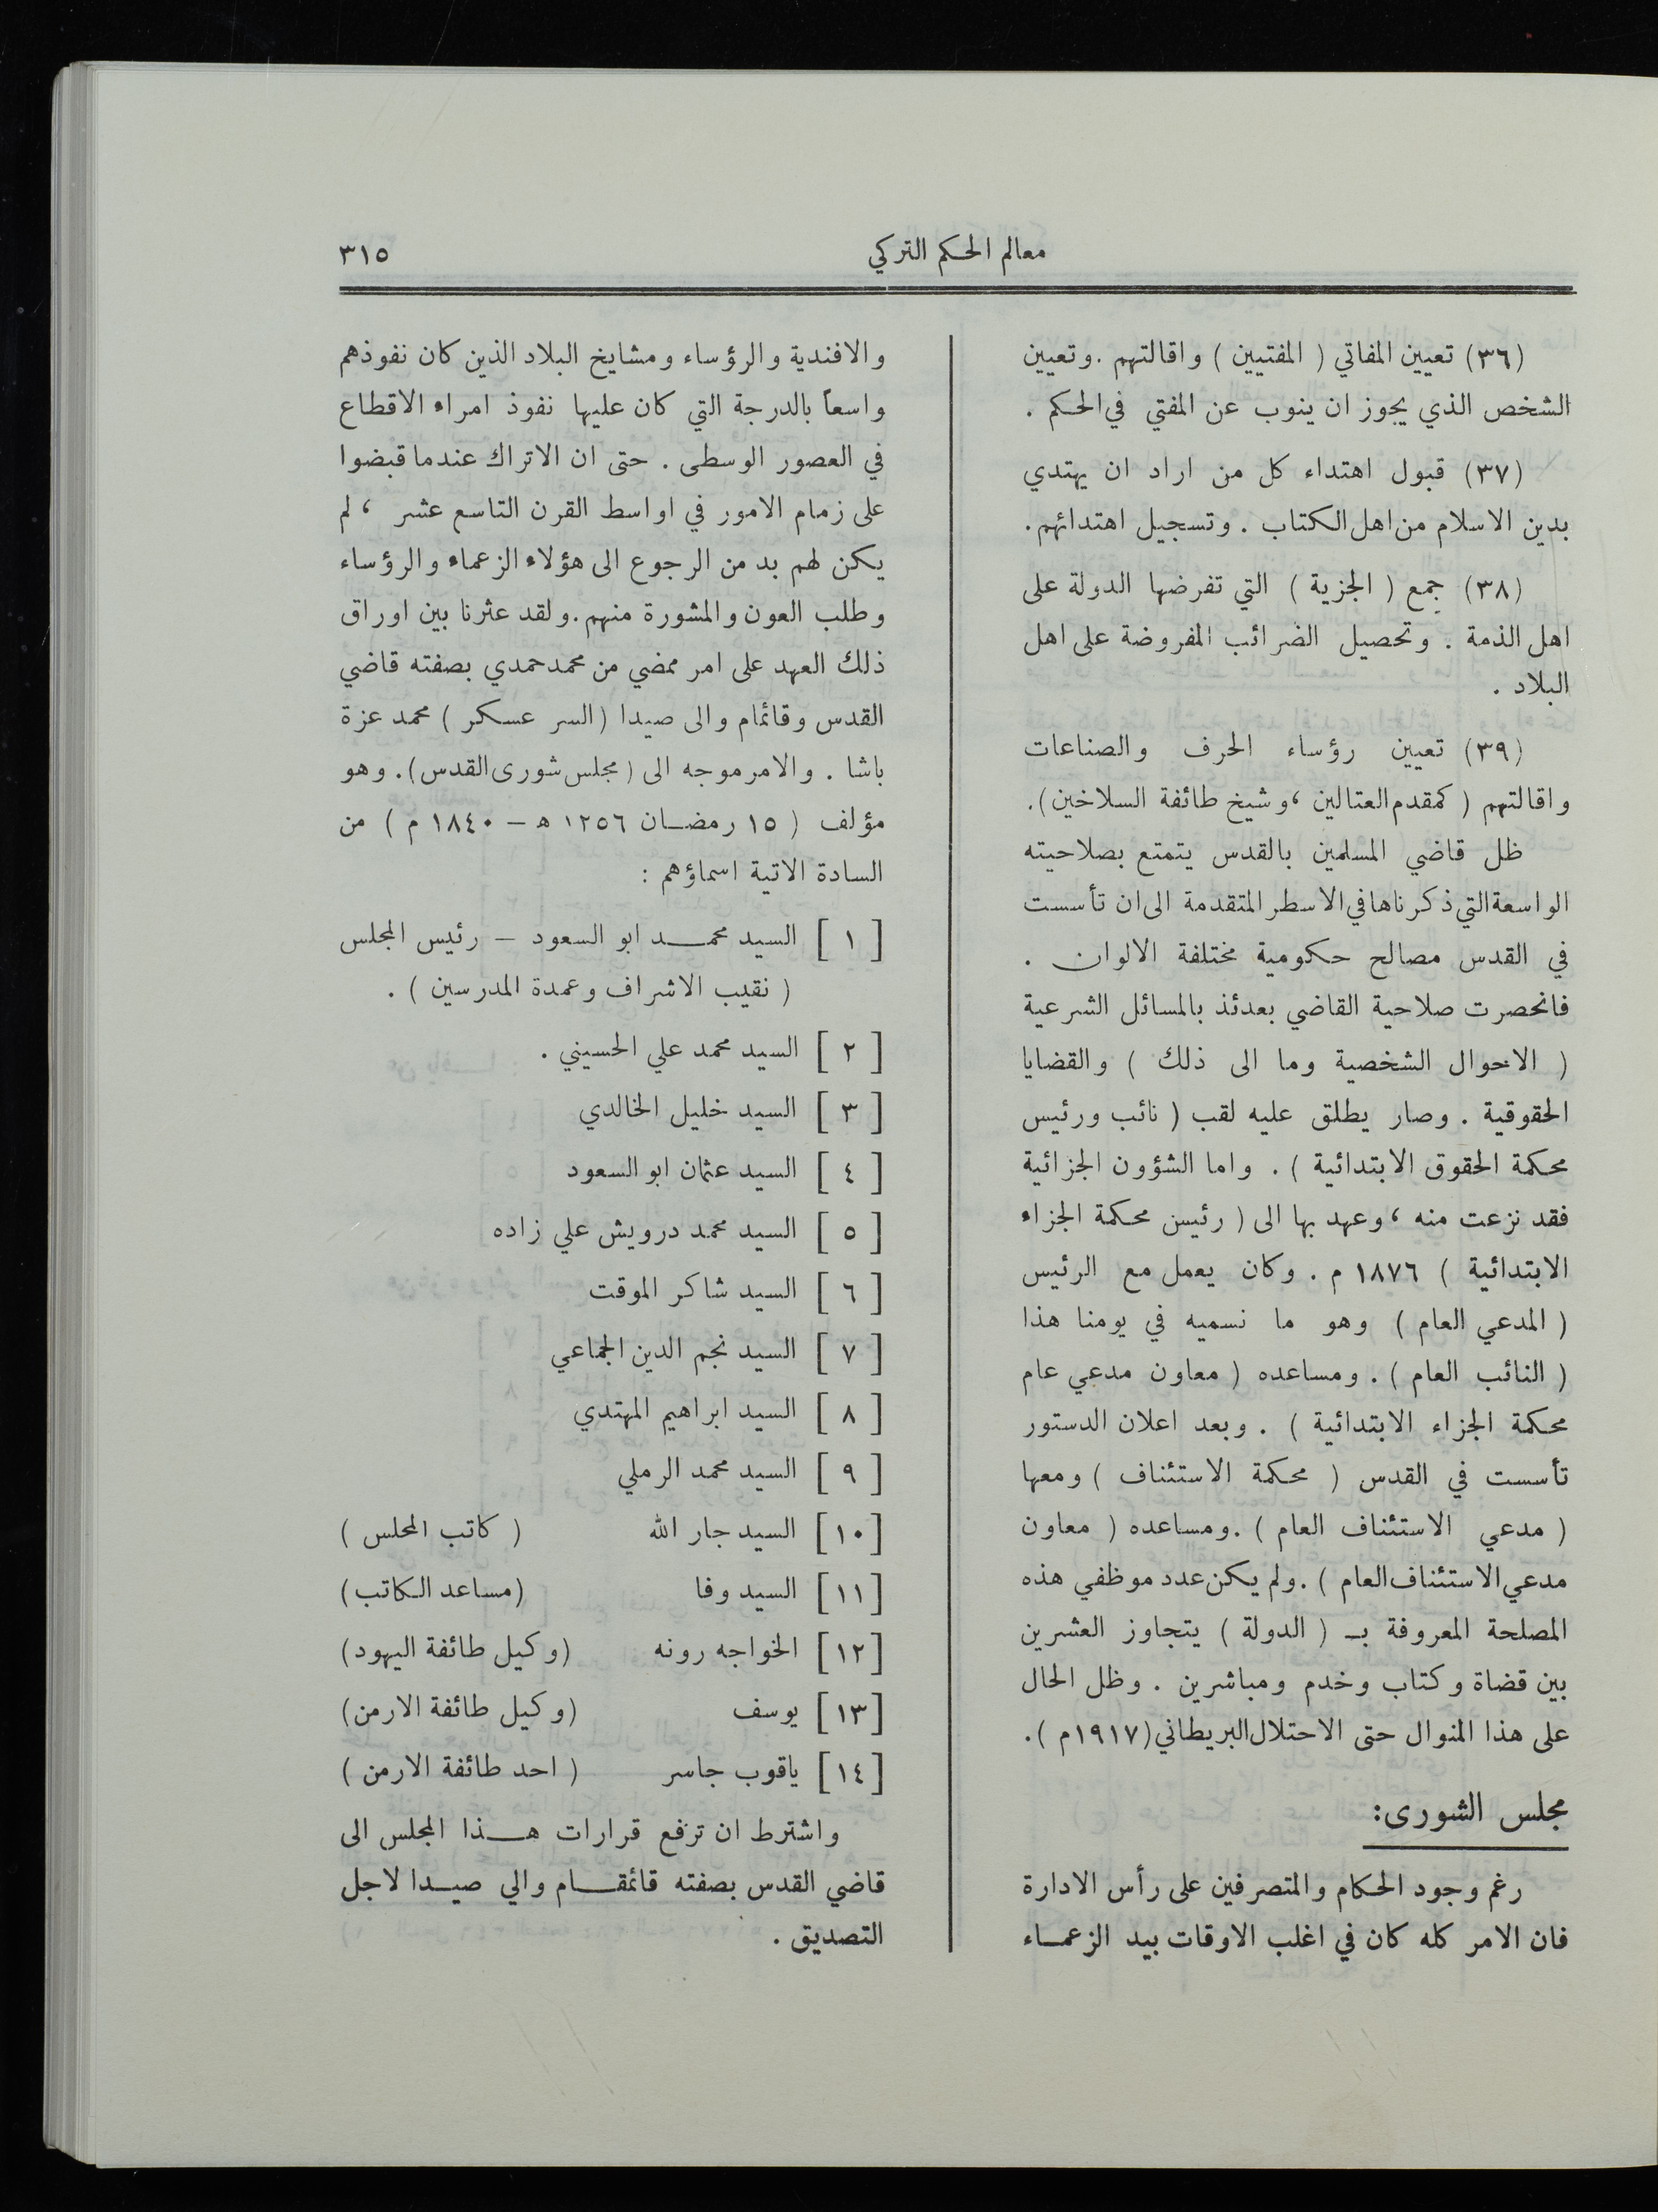 معالم الحكم التركي
٣١٥
(٣٦) تعيين المفاتي ( المفتيين ) واقالتهم . وتعيين
الشخص الذي يجوز ان ينوب عن المفتي في الحكم .
(٣٧) قبول اهتداء كل من اراد ان يهتدي
بدين الاسلام من اهل الكتاب . وتسجيل اهتدائهم .
(٣٨) جمع ( الجزية ) التي تفرضها الدولة على
اهل الذمة . وتحصيل الضرائب المفروضة على اهل
البلاد .
(٣٩) تعيين رؤساء الحرف والصناعات
واقالتهم ( كمقدم العتالين ، وشيخ طائفة السلاخين ) .
ظل قاضي المسلمين بالقدس يتمتع بصلاحيته
الواسعة التي ذكرناها في الاسطر المتقدمة الى ان تأسست
في القدس مصالح حكومية مختلفة الالوان .
فانحصرت صلاحية القاضي بعدئذ بالمسائل الشرعية
( الاحوال الشخصية وما الى ذلك ) والقضايا
الحقوقية . وصار يطلق عليه لقب ( نائب ورئيس
محكمة الحقوق الابتدائية ) . واما الشؤون الجزائية
فقد نزعت منه ، وعهد بها الى ( رئيس محكمة الجزاء
الابتدائية ) ١٨٧٦ م . وكان يعمل مع الرئيس
( المدعي العام ) وهو ما نسميه في يومنا هذا
( النائب العام ) . ومساعده ( معاون مدعي عام
محكمة الجزاء الابتدائية ) . وبعد اعلان الدستور
تأسست في القدس ( محكمة الاستئناف ) ومعها
( مدعي الاستئناف العام ) . ومساعده ( معاون
مدعي الاستئناف العام ) . ولم يكن عدد موظفي هذه
المصلحة المعروفة بـ ( الدولة ) يتجاوز العشرين
بين قضاة وكتاب وخدم ومباشرين . وظل الحال
على هذا المنوال حتى الاحتلال البريطاني (١٩١٧م ) .
مجلس الشورى:
رغم وجود الحكام والمتصرفين على رأس الادارة
فان الامر كله كان في اغلب الاوقات بيد الزعماء
والافندية والرؤساء ومشايخ البلاد الذين كان نفوذهم
واسعاً بالدرجة التي كان عليها نفوذ امراء الاقطاع
في العصور الوسطى . حتى ان الاتراك عندما قبضوا
على زمام الامور في اواسط القرن التاسع عشر ، لم
يكن لهم بد من الرجوع الى هؤلاء الزعماء والرؤساء
وطلب العون والمشورة منهم . ولقد عثرنا بين اوراق
ذلك العهد على امر ممضي من محمد حمدي بصفته قاضي
القدس وقائمام والى صيدا ( السر عسكر ) محمد عزة
باشا . والامر موجه الى ( مجلس شورى القدس ) . وهو
مؤلف ( ١٥ رمضان ١٢٥٦ ه – ١٨٤٠ م ) من
السادة الاتية اسماؤهم :
[ ١ ] السيد محمد ابو السعود – رئيس المجلس
( نقيب الاشراف وعمدة المدرسين ) .
[ ٢ ] السيد محمد علي الحسيني .
[ ٣ ] السيد خليل الخالدي
[ ٤ ] السيد عثمان ابو السعود
[ ٥ ] السيد محمد درويش علي زاده
[ ٦ ] السيد شاكر الموقت
[ ٧ ] السيد نجم الدين الجماعي
[ ٨ ] السيد ابراهيم المهتدي
[ ٩ ] السيد محمد الرملي
[١٠] السيد جار الله ( كاتب المجلس )
[١١] السيد وفا (مساعد الكاتب)
[١٢] الخواجه رونه (وكيل طائفة اليهود)
[١٣] يوسف (وكيل طائفة الارمن)
[١٤] ياقوب جاسر ( احد طائفة الارمن )
واشترط ان ترفع قرارات هذا المجلس الى
قاضي القدس بصفته قائمقام والي صيدا لاجل
التصديق .